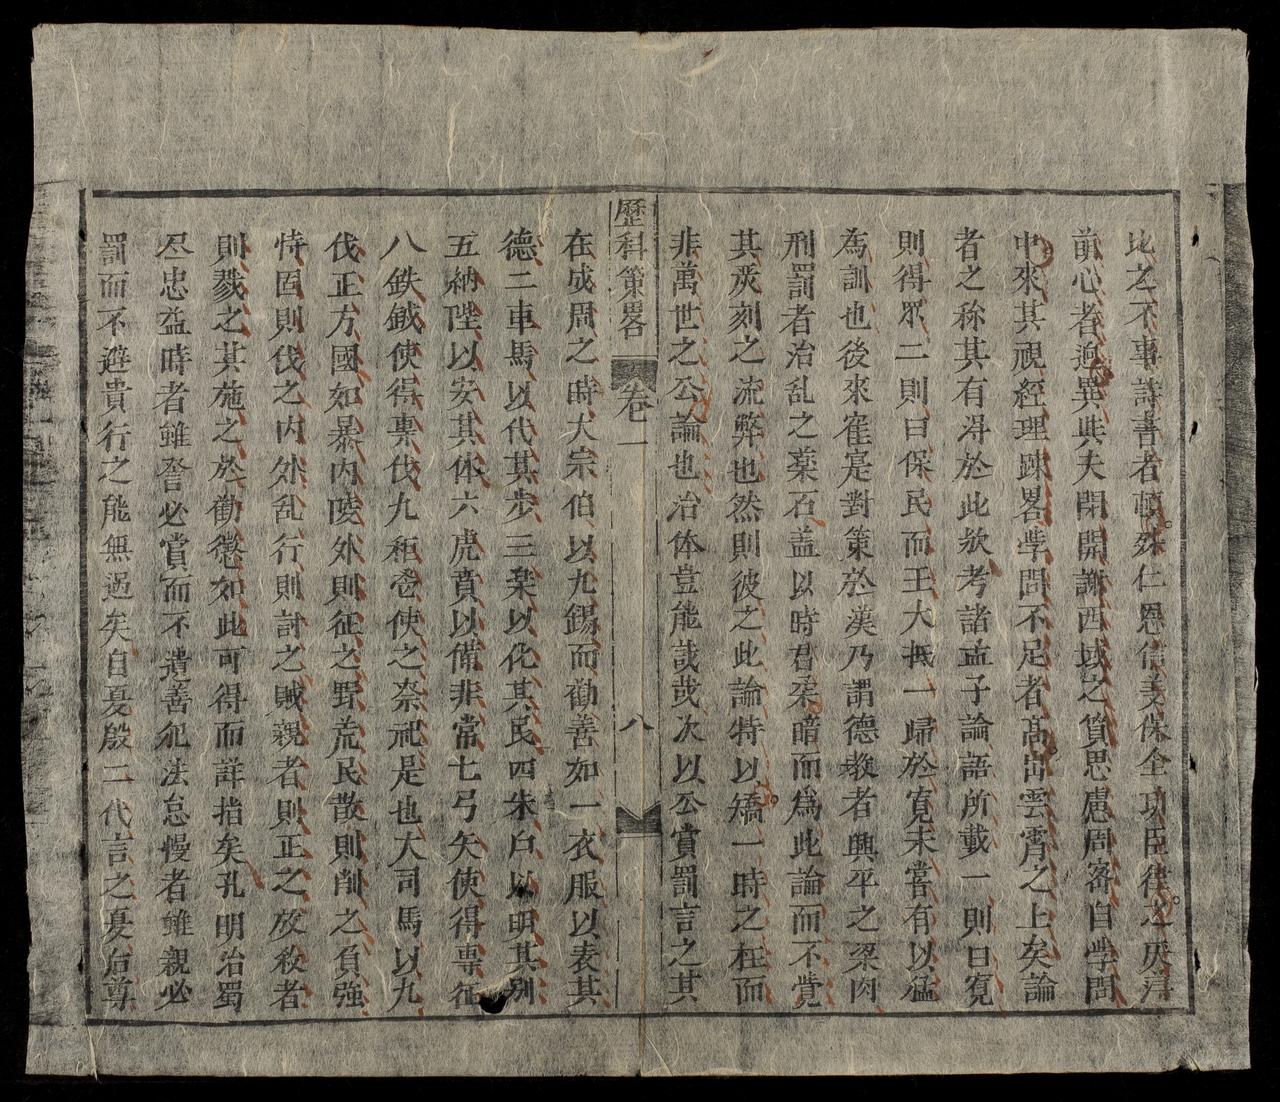 比之不事詩書者頓殊仁恩信義保全功臣律之厭清
前心者逈異此夫閉開謝西域之質思慮周密自斈問
中來其視經理踈畧斈問不足者髙出雲霄之上矣論
者之称其有淂於此欤考諸孟子論語所載一則曰寛
則得眾二則曰保民而王大抵一歸於寛未嘗有以猛
為訓也後來崔寔對策於漢乃謂德教者興平之粱肉
刑罰者治乱之薬石盖以時君柔暗而為此論而不覺
其炭刻之流弊也然則彼之此論特以矯一時之枉而
非萬世之公論也治体豈能哉哉次以公賞罰言之其
歷科策畧 卷一 八
在成周之時大宗伯以九錫而勸善如一衣服以表其
德二車馬以代其步三楽以化其民四朱户以明其别
五納陛以安其体六虎賁以備非常七弓矢使得専征
八鉄鉞使得専伐九秬鬯使之祭祀是也大司馬以九
伐正方國如暴内陵外則征之野荒民散則削之負強
恃固則伐之内外乱行則討之賊親者則正之放殺者
則戮之其施之於勸懲如此可得而詳指矣孔明治蜀
尽忠益時者雖讐必賞而不遺善犯法怠慢者雖親必
罰而不避貴行之能無過矣自夏殷二代言之夏后尊